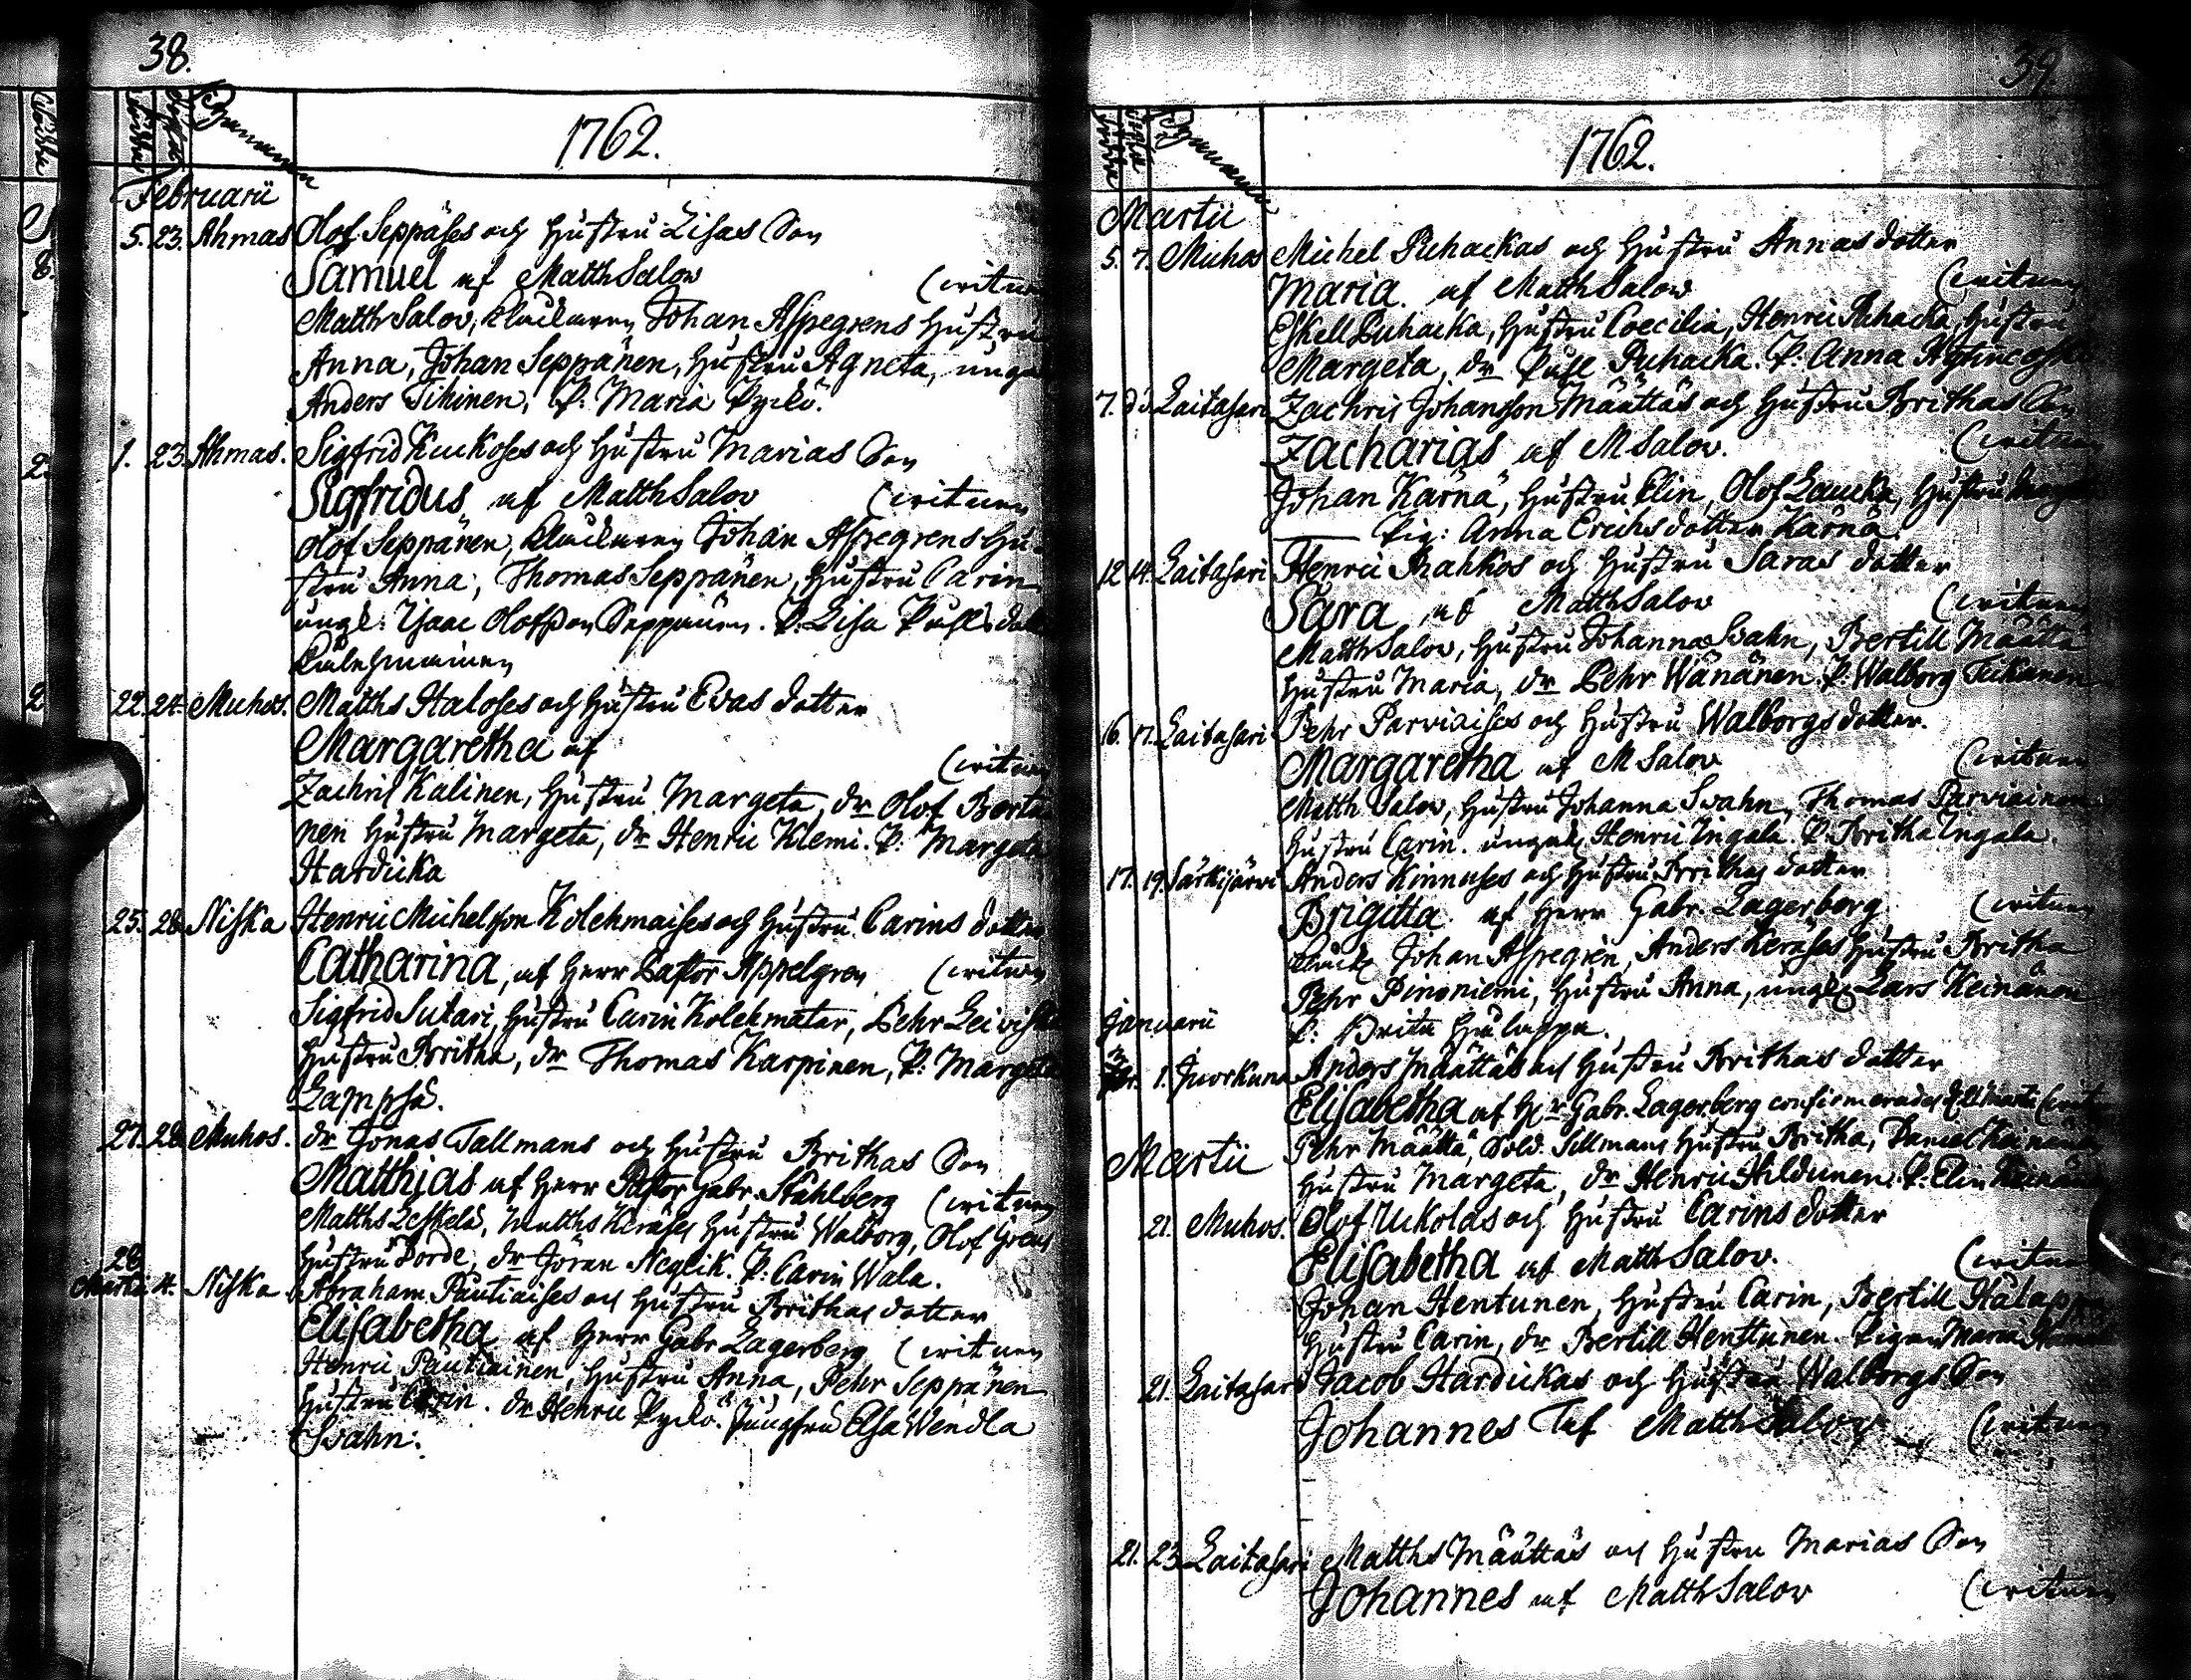 38.
Byanamn
1762.
Februarii
5. 23. Ahmas Olof Seppäses och hustru Lisas Son
Samuel af Matth Salov (vitnen
Matth Salov, klåckaren Johan Aspegrens hustru
Anna, Johan Seppänen, hustru Agneta, ungk
Anders Tihinen, P: Maria Pyckö.
1. 23. Ahmas. Sigfrid Kuckoses och hustru Marias Son
Sigfridus af Matth Salov (vitnen
Olof Seppänen, klåckaren Johan Aspegrens hu-
stru Anna, Thomas Seppänen, hustru Carin
ungk: Isaac Olofsson Seppänen. P: Lisa Påhls dotter
22. 24. Muhos. Matths Haloses och hustru Evas dotter
Margaretha af (vitnen
Zachris Kalinen, hustru Margeta, dr Olof Berta
nen hustru Margeta, dr Henric Klemi. P: Margeta
Hardicka
25. 28. Niska Henric Michelson Kolehmaises och hustru Carins dotter
Catharina, af Herr Pastor Appelgren (vitnen
Sigfrid Sutari, hustru Carin Kolehmatar, Pehr Leiviskä
hustru Britha, dr Thomas Karpinen, P: Margeta
Lampsa.
27. 28. Muhos. dr Jonas Tallmans och hustru Brithas Son
Matthias af Herr Pastor Gabr. Stahlberg (vitnen
Matths Leskelä, Matths Keräses hustru Walborg, Olof Grens
hustru Borde, dr Jöran Neglik. P: Carin Wala.
28
Martii 4. Niska Abraham Pautiaises och hustru Brithas dotter
Elisabetha af Herr Gabr Lagerberg (vitnen
Henric Pautiainen, hustru Anna, Pehr Seppänen
hustru Carin. dr Henric Pyckö. Jungfru Elsa Wendla
Svahn.
39.
Byanamn
1762.
Martii
5. 7. Muhos Michel Puhackas och hustru Annas dotter
Maria. af Matth Salov (vitnen
Eskell Puhacka, hustru Coecilia, Henric Puhacka, hustru
Margeta, dr Påhl Puhacka. P: Anna
7. do. Laitasari Zachris Johansson Määttäs och hustru Brithas Son
Zacharias af M Salov. (vitnen
Johan Kärnä, hustru Elin, Olof Laucka, hustru Margeta
Pig: Anna Erichs dotter Kärnä.
12. 14. Laitasari Henric Rahkos och hustru Saras dotter
Sara af Matth Salov (vitnen
Matth Salov, hustru Johanna Svahn, Bertill Määttä
hustru Maria, dr Pehr Wänänen. P: Walborg Tickanen
16. 17. Laitasari Pehr Parviaises och hustru Walborgs dotter.
Margaretha af M Salov (vitnen
Matth Salov, hustru Johanna Svahn, Thomas Parviainen
hustru Carin. ungk Henric Ingala. P: Britha Ingala.
17. 19. Särkijärvi Anders Kinnuses och hustru Brithas dotter
Brigitta af Herr Gabr. Lagerberg (vitnen
klåck Johan Aspegren, Anders Keräses hustru Britha
Pehr Pinoniemi, hustru Anna, ungk Lars Keinänen
P: Brita Hulappa.
Januarii
1. Juorkuna Anders Määttäs och hustru Brithas dotter
Elisabetha af Hr Gabr. Lagerberg confirmerades Martii (vitn
Pehr Määttä, Sold. Tillmans hustru Britha, Daniel Keinänen
hustru Margeta, dr Henric Hildunen. P: Elin Keinänen
Martii
21. Muhos. Olof Uckolas och hustru Carins dotter
Elisabetha af Matth Salov. (vitnen
Johan Hentunen, hustru Carin, Bertill Halappa
hustru Carin, dr Bertill Henttunen. Pigan Maria
21. Laitasari Jacob Hardickas och hustru Walborgs Son
Johannes af Matth Salov (vitnen
21. 23. Laitasari Matths Määttäs och hustru Marias Son
Johannes af Matth Salov (vitnen